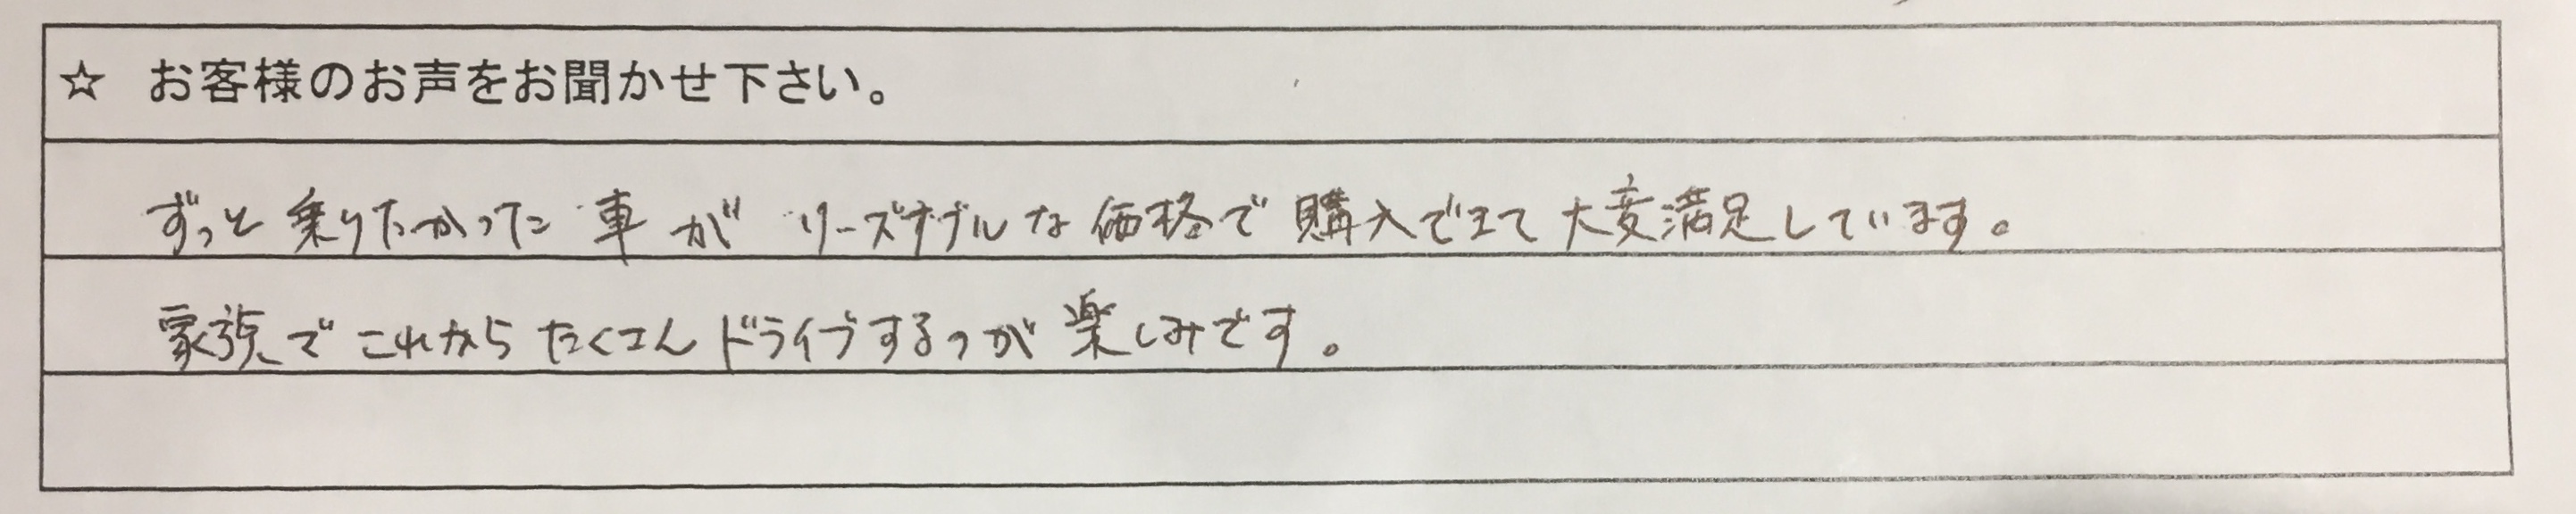 ☆ お客様のお声をお聞かせ下さい。
ずっと乗りたかった車がリーズナブルな価格で購入できて大変満足しています。
家族でこれからたくさんドライブするのが楽しみです。